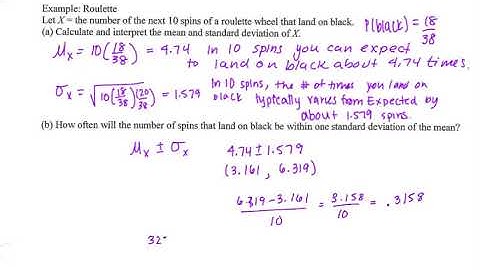 Example: Roulette
Let X = the number of the next 10 spins of a roulette wheel that land on black. P(black) = 18/38
(a) Calculate and interpret the mean and standard deviation of X.
μx = 10(18/38) = 4.74 In 10 spins you can expect
to land on black about 4.74 times.
σx = √10(18/38)(20/38) = 1.579 In 10 spins, the # of times you land on
black typically varies from expected by
about 1.579 spins.
(b) How often will the number of spins that land on black be within one standard deviation of the mean?
μx ± σx 4.74 ± 1.579
(3.161, 6.319)
6.319 - 3.161 / 10 = 3.158 / 10 = .3158
32